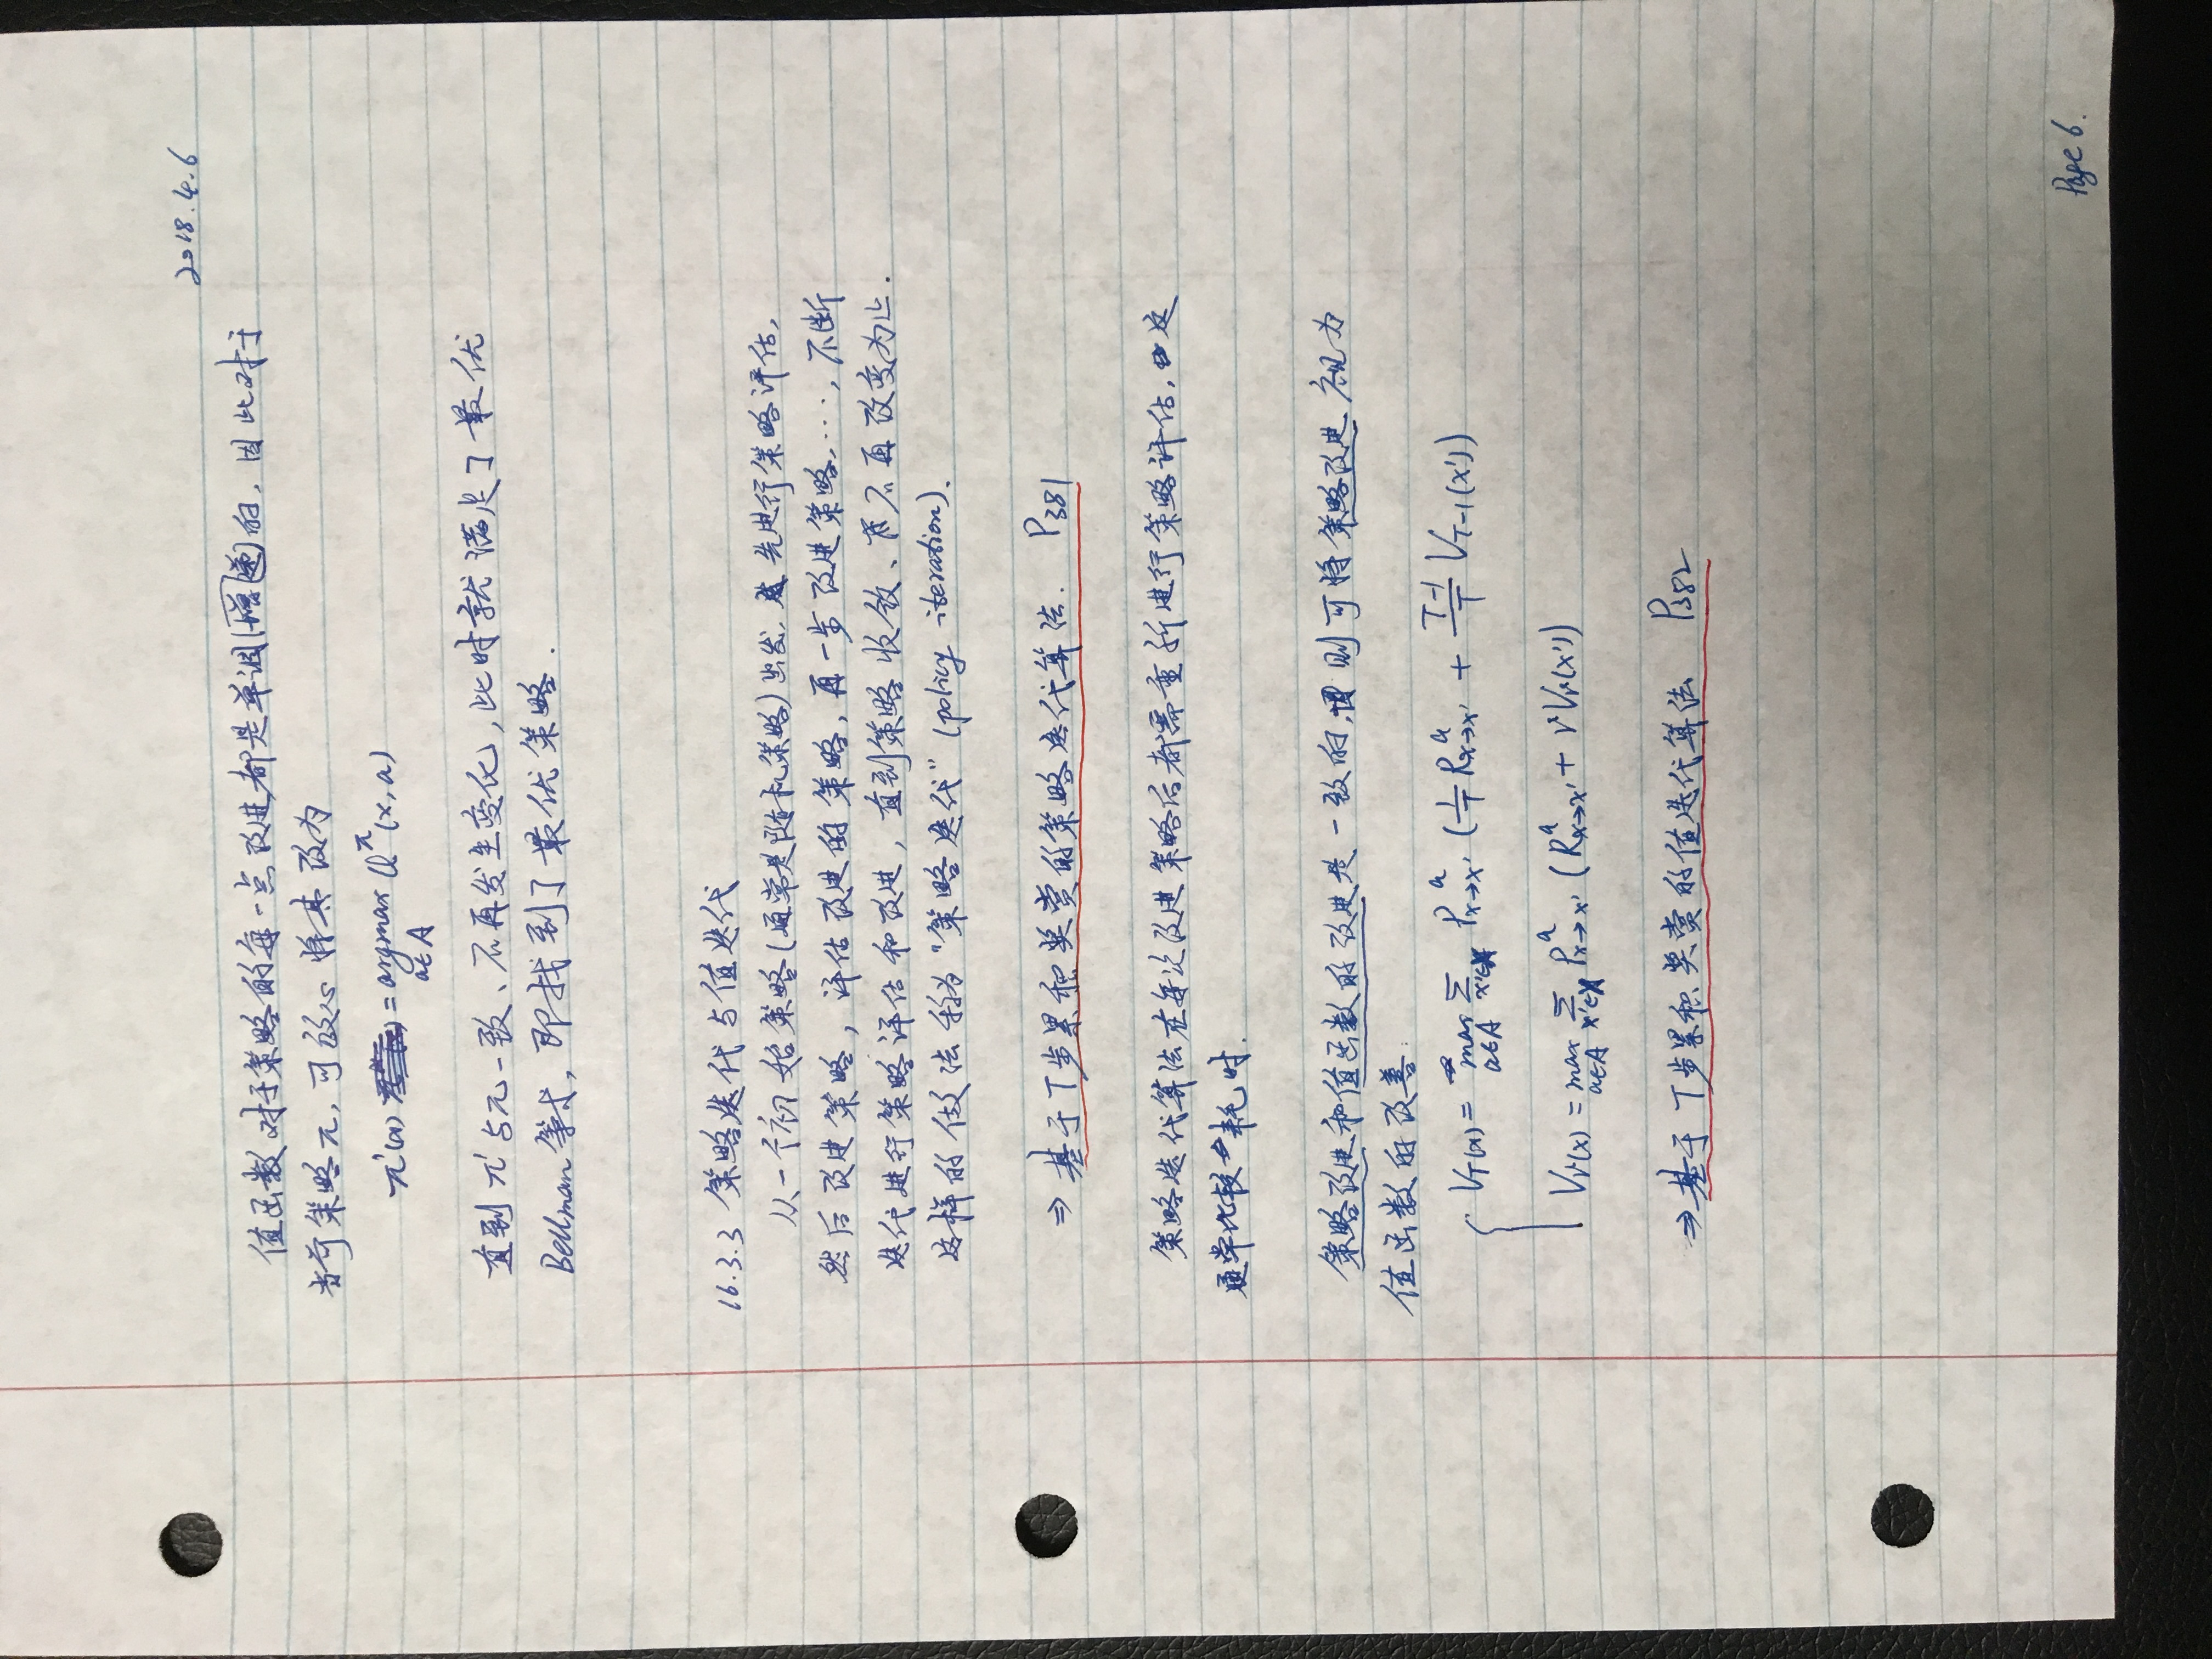 2018.4.6
值函数对于策略的每一点改进都是单调递增的, 因此对于
当前策略π, 可放心将其改为
π'(x) = argmax Q^π(x,a)
a∈A
直到π'与π一致、不再发生变化, 此时就满足了最优
Bellman等式, 即找到了最优策略.
16.3.3 策略迭代与值迭代
从一个初始策略(通常是随机策略)出发, 先进行策略评估,
然后改进策略, 评估改进的策略, 再一步改进策略, …, 不断
迭代进行策略评估和改进, 直到策略收敛、不再改变为止.
这样的做法称为"策略迭代" (policy iteration).
⇒ 基于T步累积奖赏的策略迭代算法. P381
策略迭代算法在每次改进策略后都需重新进行策略评估, 这
通常比较耗时.
策略改进和值函数的改进是一致的, 则可将策略改进视为
值函数的改善:
V_T(x) = max_{a∈A} Σ_{x'∈X} P^a_{x→x'} (1/T R^a_{x→x'} + (T-1)/T V_{T-1}(x'))
V_γ(x) = max_{a∈A} Σ_{x'∈X} P^a_{x→x'} (R^a_{x→x'} + γV_γ(x'))
⇒ 基于T步累积奖赏的值迭代算法 P382
Page 6.